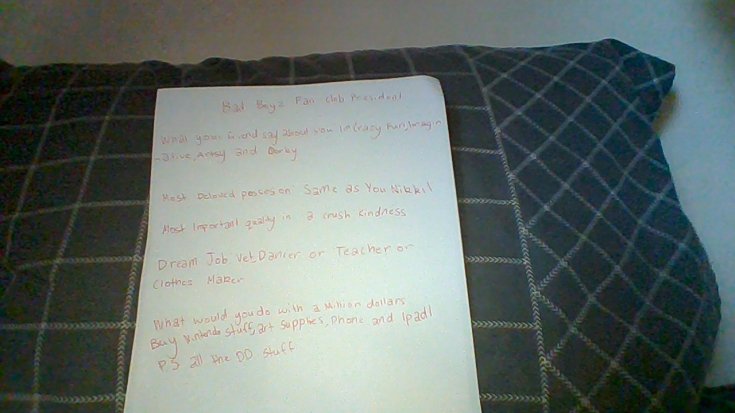 Bad Boyz Fan club President
What your friend say about you Im Crazy Fun, Imagin
native, Artsy and Dorky
Most Beloved possesion Same as You Nikki!
Most Important quality in a crush Kindness
Dream Job Vet, Dancer or Teacher or
Clothes Maker
What would you do with a Million dollars
Buy Nintendo stuff, art supplies, Phone and Ipad!
P.S all the DD stuff